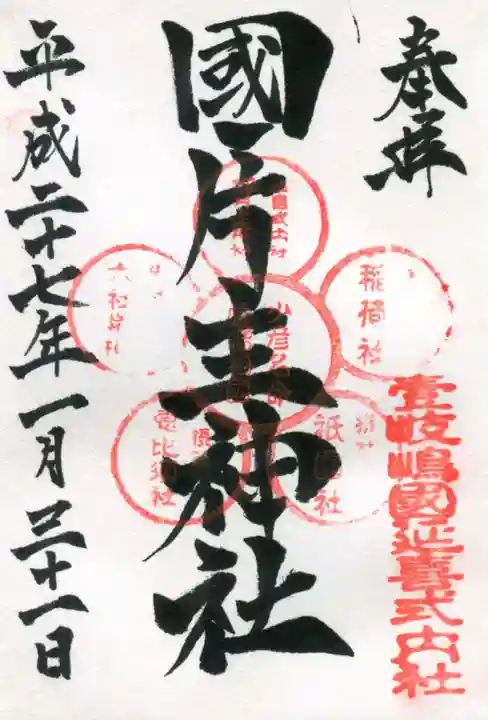 奉拝
壹岐嶋國延喜式内社
國片主神社
稲荷社
少彦名命
祇園社
恵比須社
平成二十七年一月三十一日